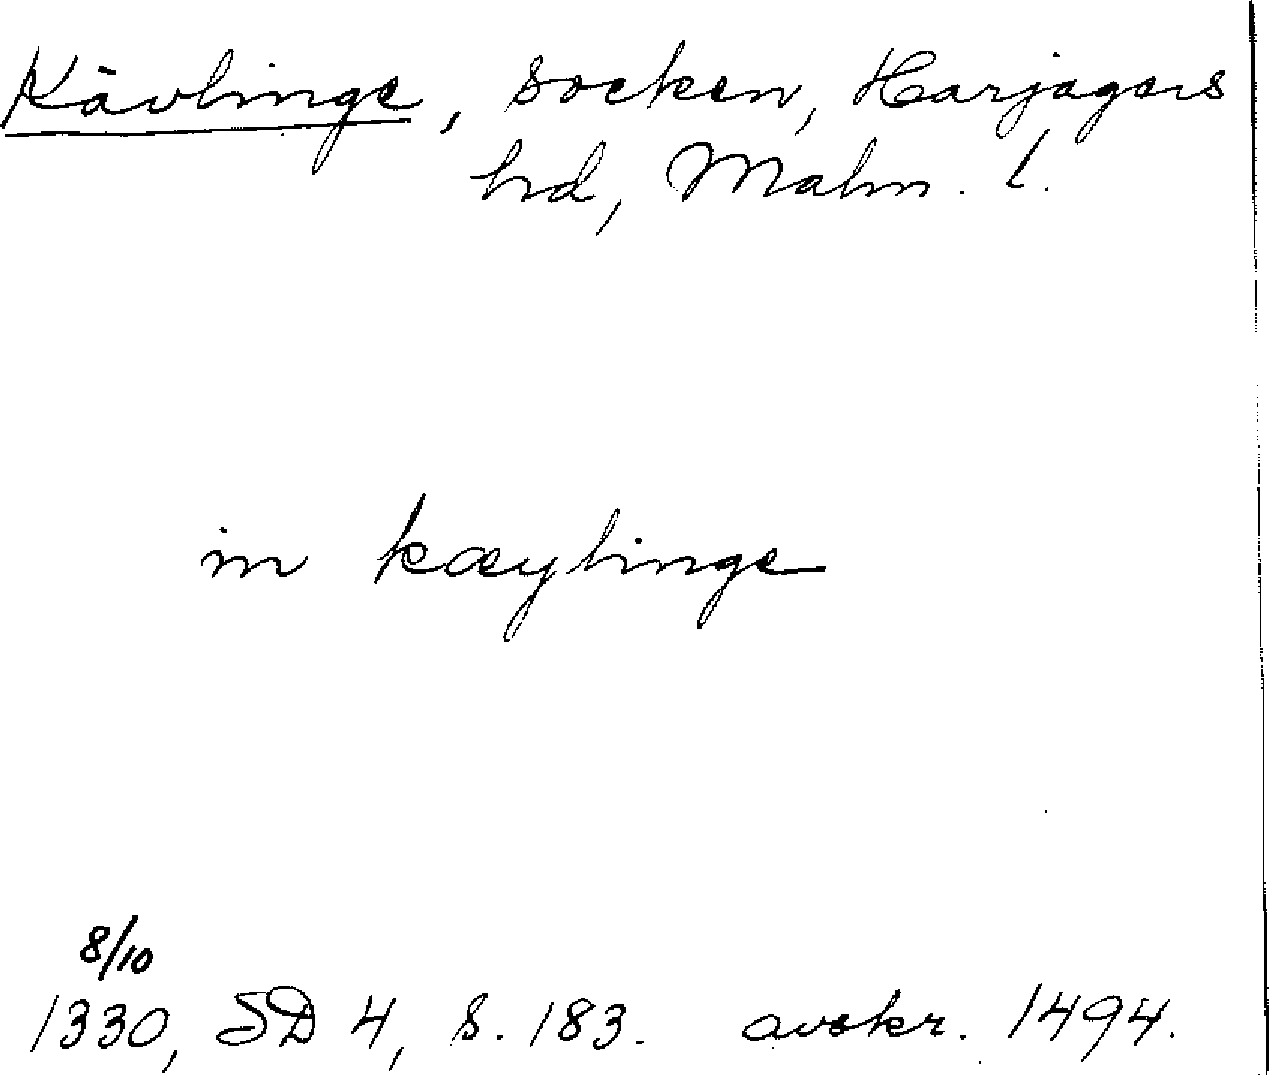 Kävlinge, socken, Harjagers
hd, Malm. l.
in kæylinge
8/10
1330, SD 4, s. 183. avskr. 1494.